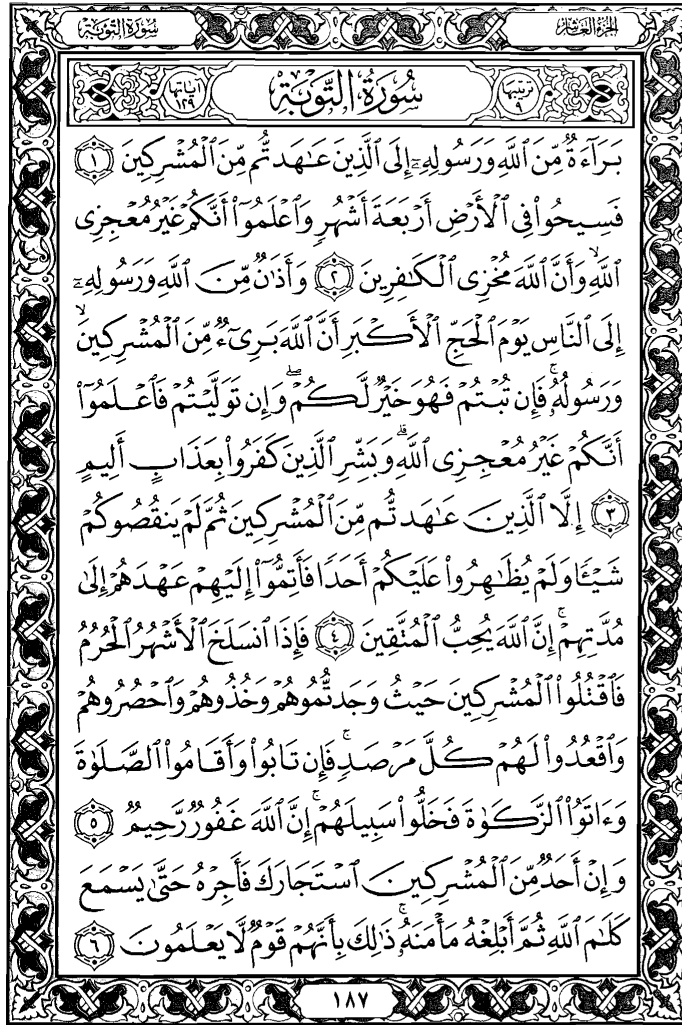 الجزء العاشر
سورة التوبة
ترتيبها ٩
سُورَةُ التَّوۡبَةِ
آياتها ١٢٩
بَرَآءَةٞ مِّنَ ٱللَّهِ وَرَسُولِهِۦٓ إِلَى ٱلَّذِينَ عَٰهَدتُّم مِّنَ ٱلۡمُشۡرِكِينَ ١
فَسِيحُواْ فِي ٱلۡأَرۡضِ أَرۡبَعَةَ أَشۡهُرٖ وَٱعۡلَمُوٓاْ أَنَّكُمۡ غَيۡرُ مُعۡجِزِي
ٱللَّهِ وَأَنَّ ٱللَّهَ مُخۡزِي ٱلۡكَٰفِرِينَ ٢ وَأَذَٰنٞ مِّنَ ٱللَّهِ وَرَسُولِهِۦٓ
إِلَى ٱلنَّاسِ يَوۡمَ ٱلۡحَجِّ ٱلۡأَكۡبَرِ أَنَّ ٱللَّهَ بَرِيٓءٞ مِّنَ ٱلۡمُشۡرِكِينَ
وَرَسُولُهُۥۚ فَإِن تُبۡتُمۡ فَهُوَ خَيۡرٞ لَّكُمۡۖ وَإِن تَوَلَّيۡتُمۡ فَٱعۡلَمُوٓاْ
أَنَّكُمۡ غَيۡرُ مُعۡجِزِي ٱللَّهِۗ وَبَشِّرِ ٱلَّذِينَ كَفَرُواْ بِعَذَابٍ أَلِيمٍ
٣ إِلَّا ٱلَّذِينَ عَٰهَدتُّم مِّنَ ٱلۡمُشۡرِكِينَ ثُمَّ لَمۡ يَنقُصُوكُمۡ
شَيۡـٔٗا وَلَمۡ يُظَٰهِرُواْ عَلَيۡكُمۡ أَحَدٗا فَأَتِمُّوٓاْ إِلَيۡهِمۡ عَهۡدَهُمۡ إِلَىٰ
مُدَّتِهِمۡۚ إِنَّ ٱللَّهَ يُحِبُّ ٱلۡمُتَّقِينَ ٤ فَإِذَا ٱنسَلَخَ ٱلۡأَشۡهُرُ ٱلۡحُرُمُ
فَٱقۡتُلُواْ ٱلۡمُشۡرِكِينَ حَيۡثُ وَجَدتُّمُوهُمۡ وَخُذُوهُمۡ وَٱحۡصُرُوهُمۡ
وَٱقۡعُدُواْ لَهُمۡ كُلَّ مَرۡصَدٖۚ فَإِن تَابُواْ وَأَقَامُواْ ٱلصَّلَوٰةَ
وَءَاتَوُاْ ٱلزَّكَوٰةَ فَخَلُّواْ سَبِيلَهُمۡۚ إِنَّ ٱللَّهَ غَفُورٞ رَّحِيمٞ ٥
وَإِنۡ أَحَدٞ مِّنَ ٱلۡمُشۡرِكِينَ ٱسۡتَجَارَكَ فَأَجِرۡهُ حَتَّىٰ يَسۡمَعَ
كَلَٰمَ ٱللَّهِ ثُمَّ أَبۡلِغۡهُ مَأۡمَنَهُۥۚ ذَٰلِكَ بِأَنَّهُمۡ قَوۡمٞ لَّا يَعۡلَمُونَ ٦
١٨٧